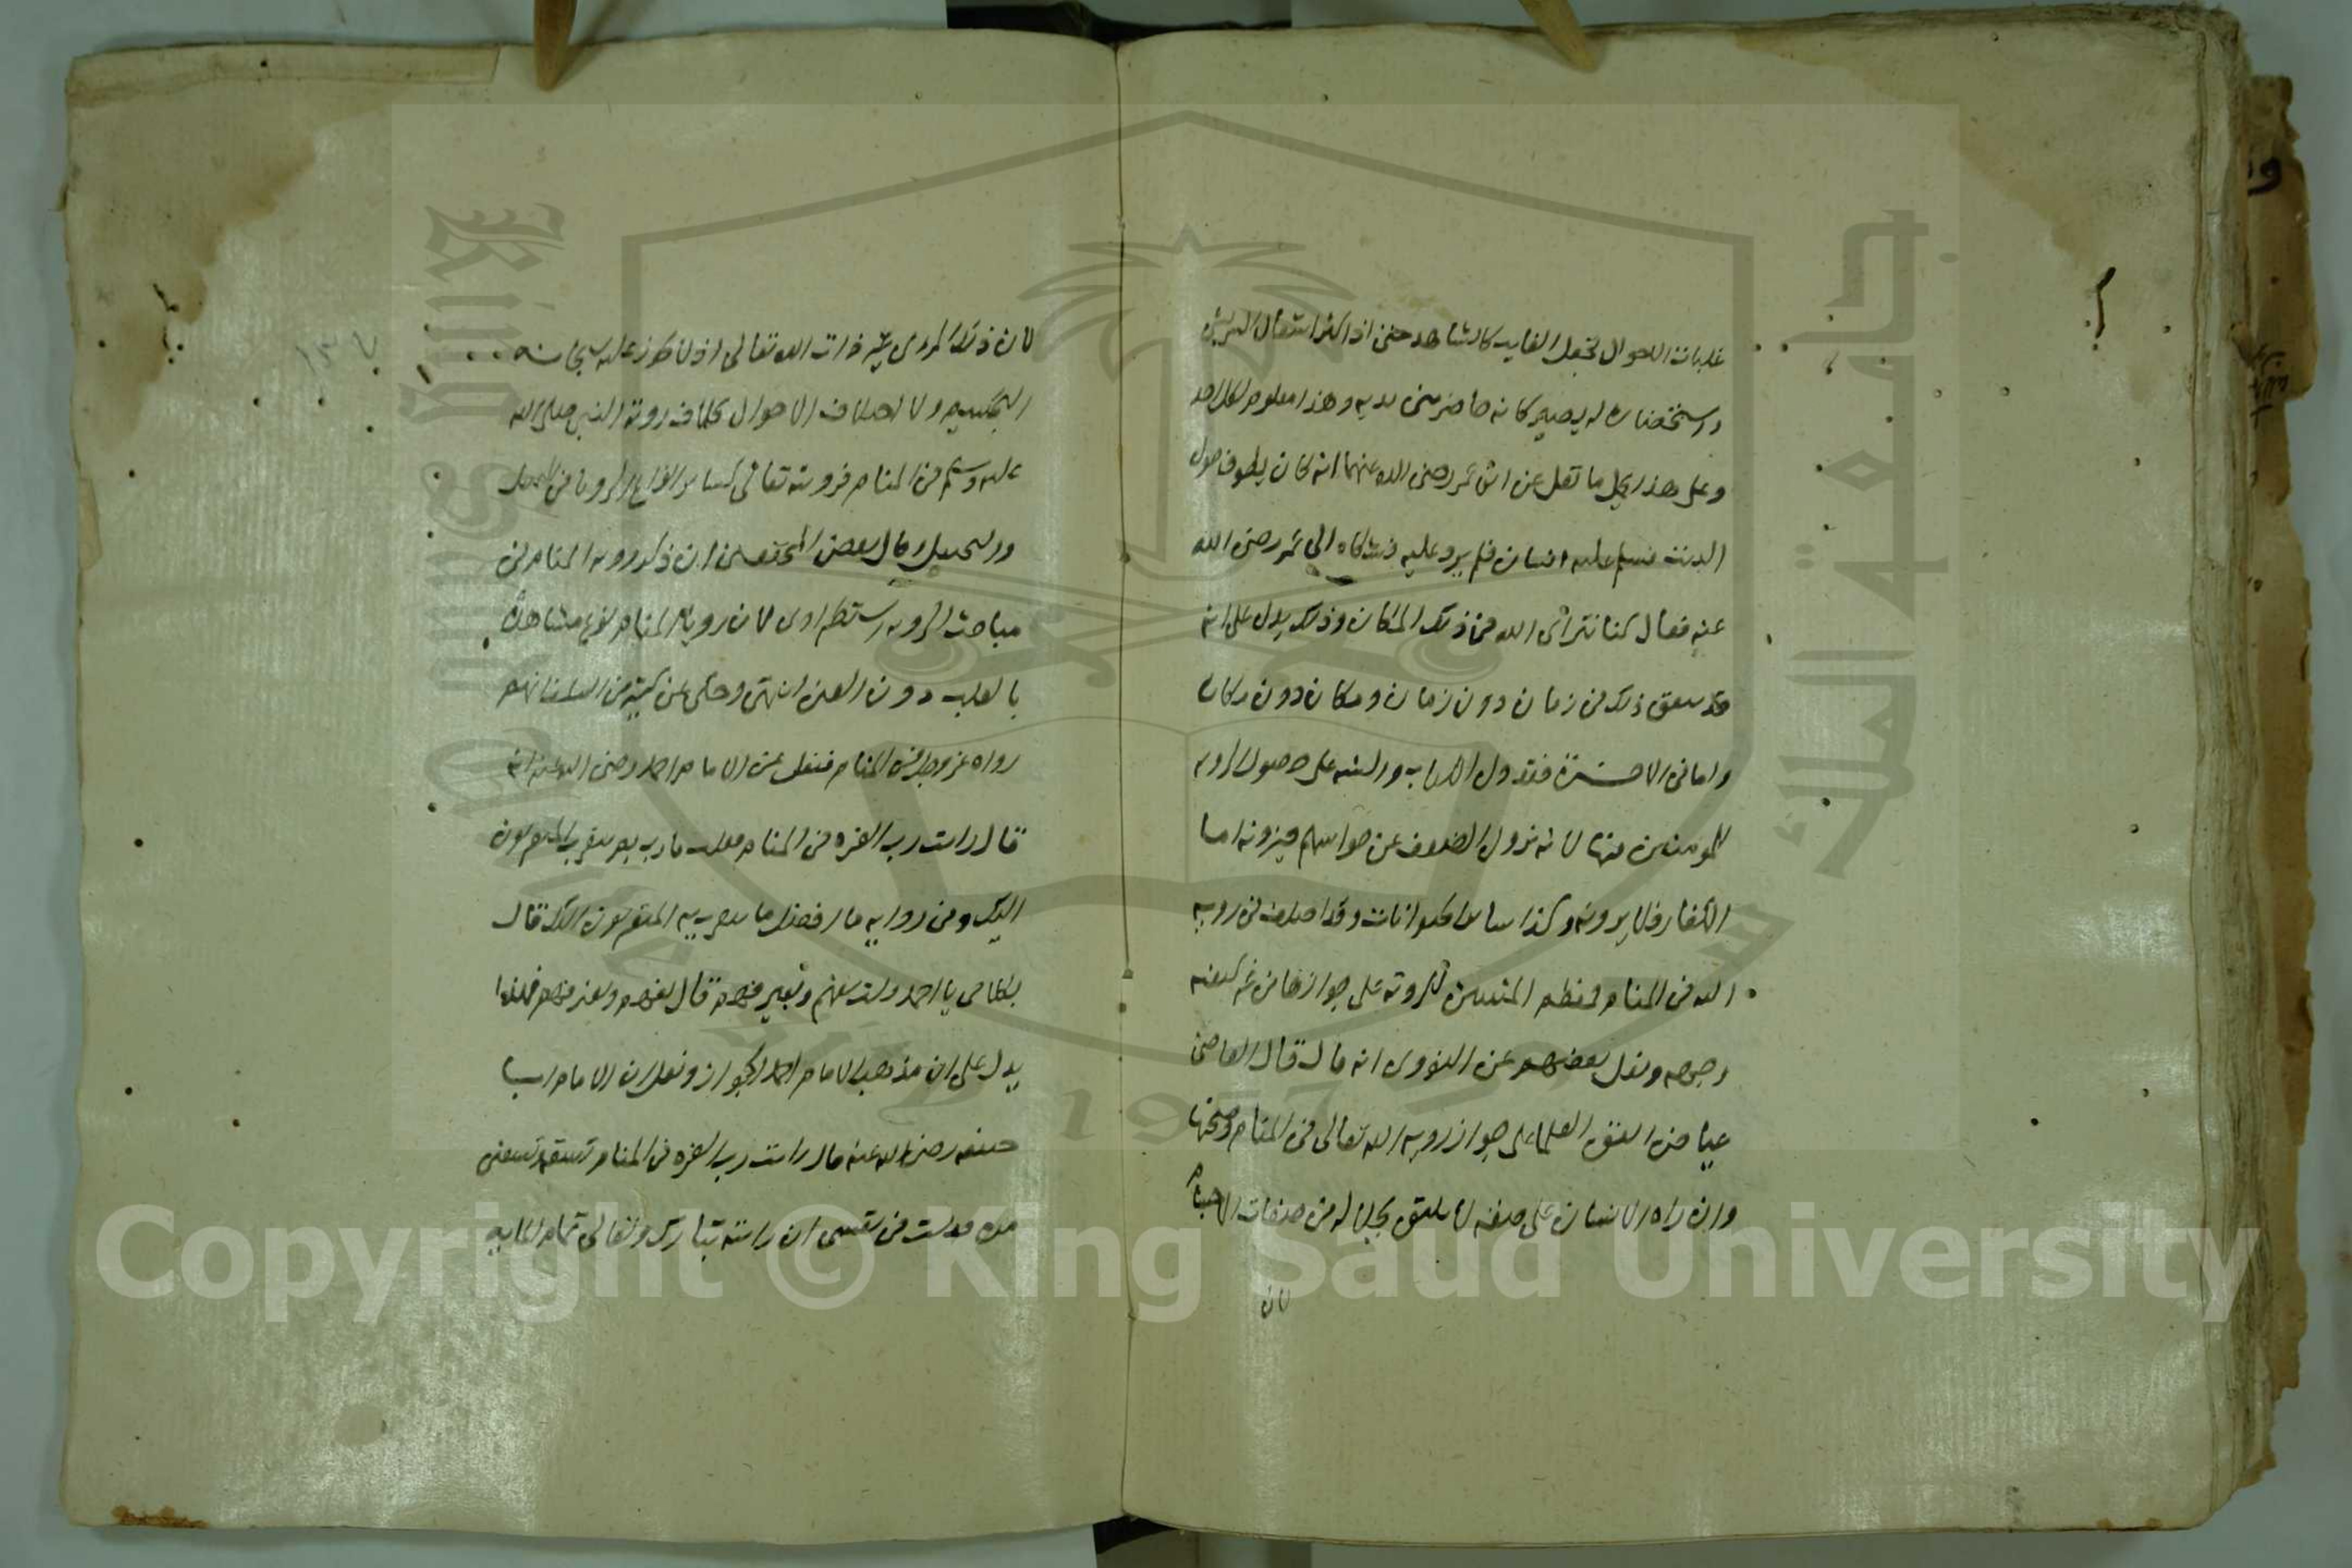 غلبات الاحوال تجعل الغايب كالشاهد حتى اذا كثر اشتغال السر بشي
واستحضاره له يصير كانه حاضر بين يديه وهذا معلوم لكل احد
وعلى هذا يحمل ما نقل عن ابن عمر رضى الله عنهما انه كان يطوف حول
البيت فسلم عليه انسان فلم يرد عليه فشكاه الى عمر رضى الله
عنه فقال كنا نتراى الله فى ذلك المكان وذلك يدل على انه
قد يتفق ذلك فى زمان دون زمان ومكان دون مكان
واما فى الاخرة فقد دل الكتاب والسنة على حصول الروية
للمومنين فيها لانه يزول الضعف عن حواسهم فيرونه اما
الكفار فلا يرونه وكذا ساير الحيوانات وقد اختلف فى روية
الله فى المنام فمعظم المثبتين للروية على جوازها من غير كيفية
وجهة ونقل بعضهم عن النووى انه قال قال القاضى
عياض اتفق العلما على جواز روية الله تعالى فى المنام وصحتها
وان راه الانسان على صفة لا يليق بجلاله من صفات الاجسام
لان
لان ذلك المرى غير ذات الله تعالى اذ لا يجوز عليه سبحانه
التجسيم ولا اختلاف الاحوال بخلاف روية النبى صلى الله
عليه وسلم فى المنام فرويته تعالى كساير انواع الرويا من التمثيل
والتخييل وقال بعض المحققين ان ذكر روية المنام فى
مباحث الروية استطرادى لان رويا المنام نوع مشاهدة
بالقلب دون العين انتهى وحكى عن كثير من السلف انهم
راوه عز وجل فى المنام فنقل عن الامام احمد رضى الله عنه انه
قال رايت رب العزة فى المنام فقلت يا رب بم يتقرب المتقربون
اليك وفى رواية ما افضل ما يتقرب به المتقربون اليك قال
بكلامى يا احمد قلت بفهم وبغير فهم قال بفهم وبغير فهم فهذا
يدل على ان مذهب الامام احمد الجواز ونقل ان الامام ابا
حنيفه رضى الله عنه قال رايت رب العزة فى المنام تسعة وتسعين
مرة فقلت فى نفسى ان رايته تبارك وتعالى تمام الماية